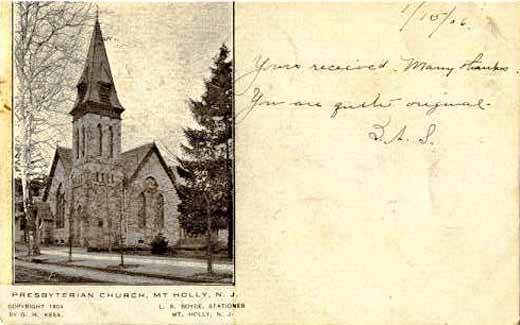 1/15/06.
Yours received. Many thanks.
You are quite original.
B. A. S.
PRESBYTERIAN CHURCH, MT HOLLY, N. J.
COPYRIGHT 1904
BY G. H.
L. B. BOYDE, STATIONER
MT. HOLLY, N. J.